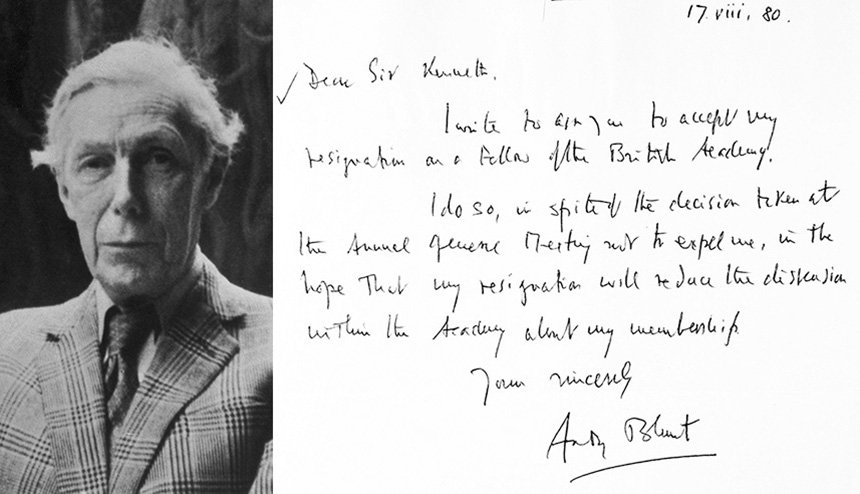 17. viii. 80.
Dear Sir Kenneth.
I write to ask you to accept my
resignation as a Fellow of the British Academy.
I do so, in spite of the decision taken at
the Annual General Meeting not to expel me, in the
hope that my resignation will reduce the dissension
within the Academy about my membership.
Yours sincerely
Anthony Blunt